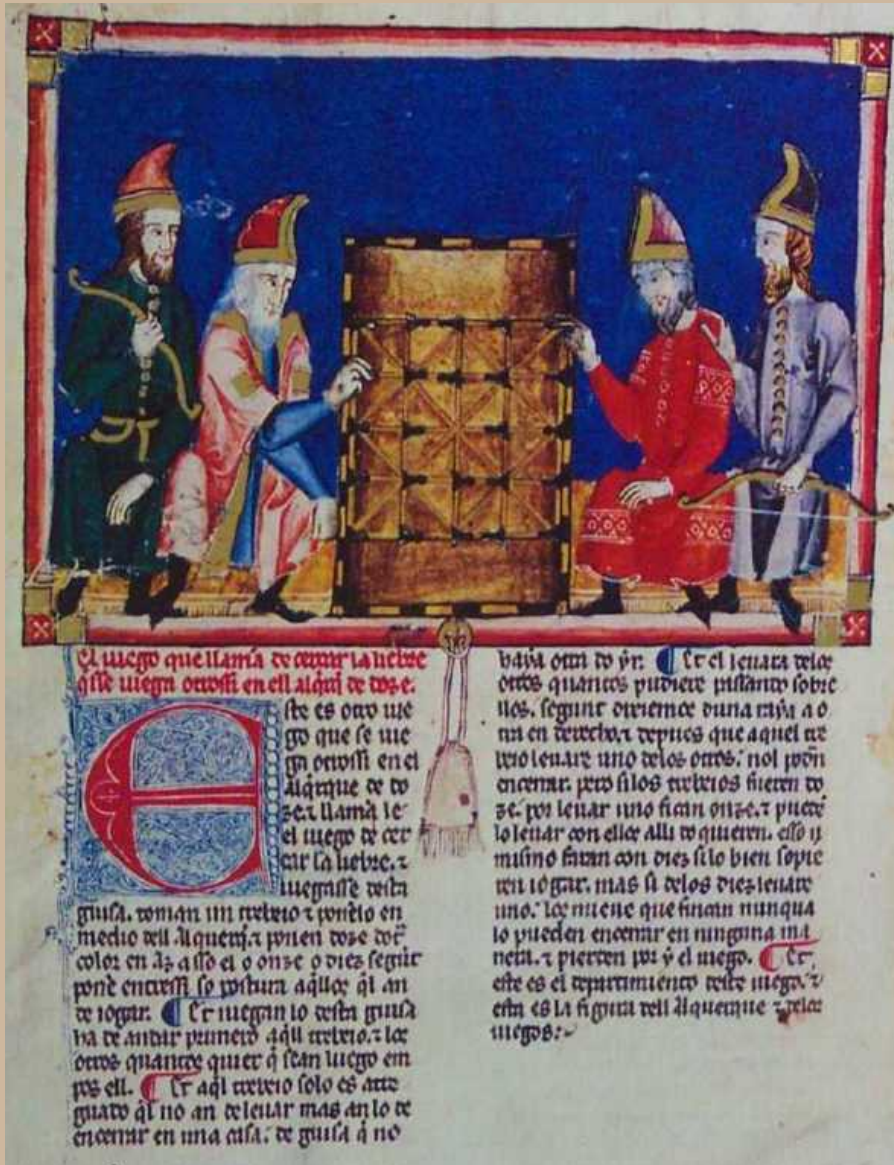 El iuego que llamā de cercar la liebre
q̄sse iuega otrossi en ell alq̄rq̄ de doze.
Este es otro iue
go que se iue
ga otrossi en el
alq̄rque de do
ze. ⁊ llamā le
el iuego de cer
car la liebre. ⁊
iuegasse desta
guisa. toman un trebeio ⁊ ponēlo en
medio dell alquerq̄. ⁊ ponen doze dotᷓ
color en az assi o onze o diez segūt
ponē entressi so postura aq̄llos q̄l an
de iogar. ¶ Et iuegan lo desta guisa
ha de andar primero aq̄ll trebeio. ⁊ los
otros quantos quier q̄ sean luego em
pos ell. ¶ Et aq̄l trebeio solo es atre
guado q̄l no an de leuar mas an lo de
encerrar en una casa. de guisa q̄ no
haya otra do yr. ¶ Et el leuara delos
otros quantos pudiere passando sobre
llos. segunt diximos duna raya a o
tra en derecho. ⁊ depues que aquel tre
beio leuare uno delos otros. nol podrā
encerrar. pero si los trebeios fueren do
ze. por leuar uno fican onze. ⁊ puedē
lo leuar con ellos alli do quieren. esso
mismo faran con diez si lo bien sopie
ren iogar. mas si delos diez leuare
uno. los nueue que fincan nunqua
lo pueden encerrar en ninguna ma
nera. ⁊ pierden por y el iuego. ¶ Et
este es el departimiento deste iuego. ⁊
esta es la figura dell alquerque ⁊ delos
iuegos.